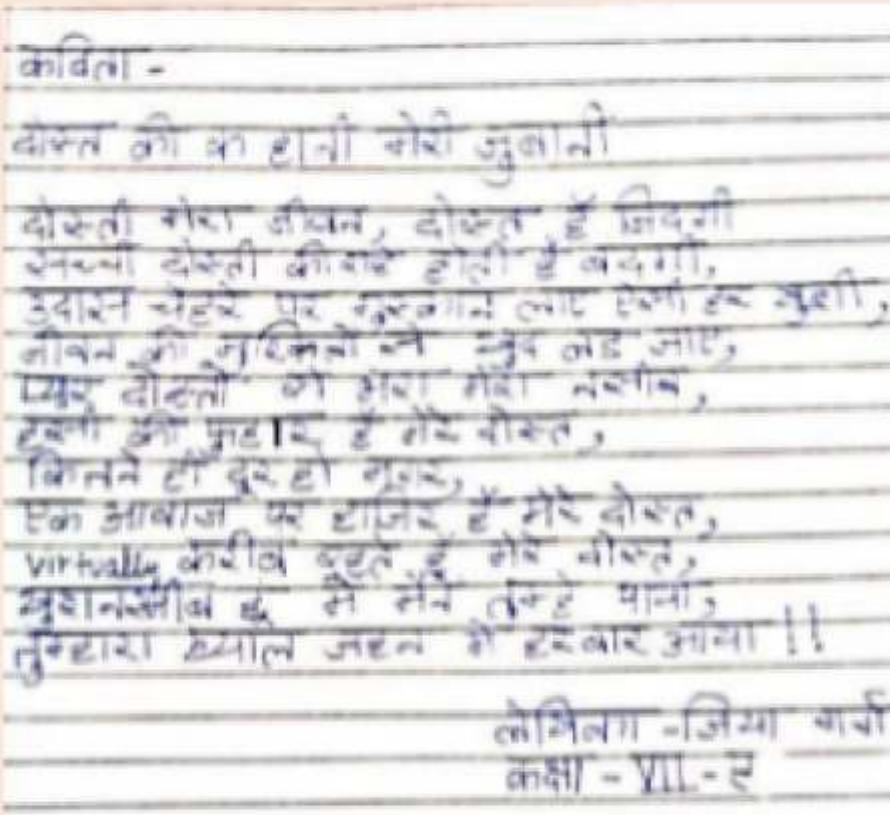 कविता -
दोस्त की कहानी मेरी जुबानी
दोस्ती मेरा जीवन, दोस्त है जिंदगी
सच्ची दोस्ती की होती है बंदगी,
उदास चेहरे पर मुस्कान लाए ऐसी हर खुशी,
जीवन की मुश्किलों से खुद लड जाए,
दोस्तों से भरा मेरा नसीब,
हसी की फुहार है मेरे दोस्त,
कितने ही दूर हो मगर,
एक आवाज पर हाजिर है मेरे दोस्त,
virtually करीब रहते है मेरे दोस्त,
खुशनसीब हूं मै मैने तुम्हे पाया,
तुम्हारा ख्याल जहन मे हरबार आया !!
लेखिका - जिया
कक्षा - VII - ए